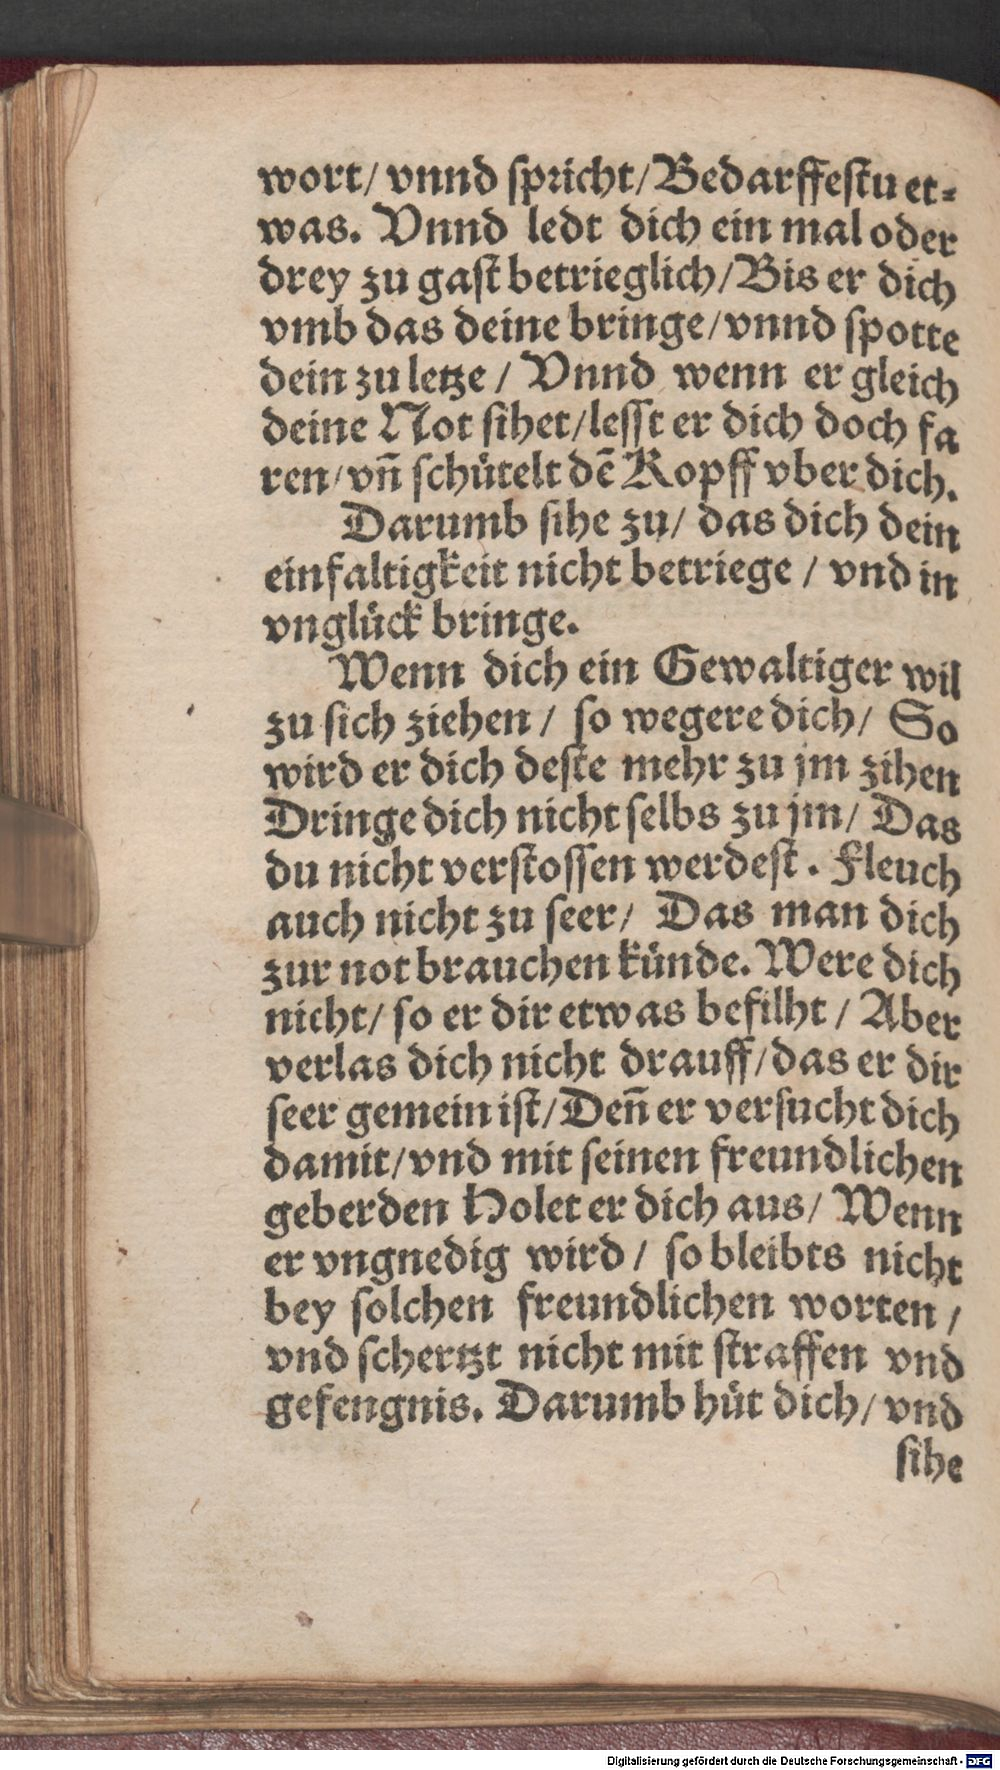 wort/ vnnd spricht/ Bedarffestu et⸗
was. Vnnd ledt dich ein mal oder
drey zu gast betrieglich/ Bis er dich
vmb das deine bringe/ vnnd spotte
dein zu letze / Vnnd wenn er gleich
deine Not sihet/ lesst er dich doch fa
ren/ vñ schütelt dē Kopff vber dich.
Darumb sihe zu/ das dich dein
einfaltigkeit nicht betriege / vnd in
vnglück bringe.
Wenn dich ein Gewaltiger wil
zu sich ziehen / so wegere dich/ So
wird er dich deste mehr zu jm zihen
Dringe dich nicht selbs zu jm/ Das
du nicht verstossen werdest. Fleuch
auch nicht zu seer/ Das man dich
zur not brauchen künde. Were dich
nicht/ so er dir etwas befilht / Aber
verlas dich nicht drauff/ das er dir
seer gemein ist/ Deñ er versucht dich
damit/ vnd mit seinen freundlichen
geberden Holet er dich aus/ Wenn
er vngnedig wird / so bleibts nicht
bey solchen freundlichen worten /
vnd schertzt nicht mit straffen vnd
gefengnis. Darumb hüt dich/ vnd
sihe
Digitalisierung gefördert durch die Deutsche Forschungsgemeinschaft - DFG